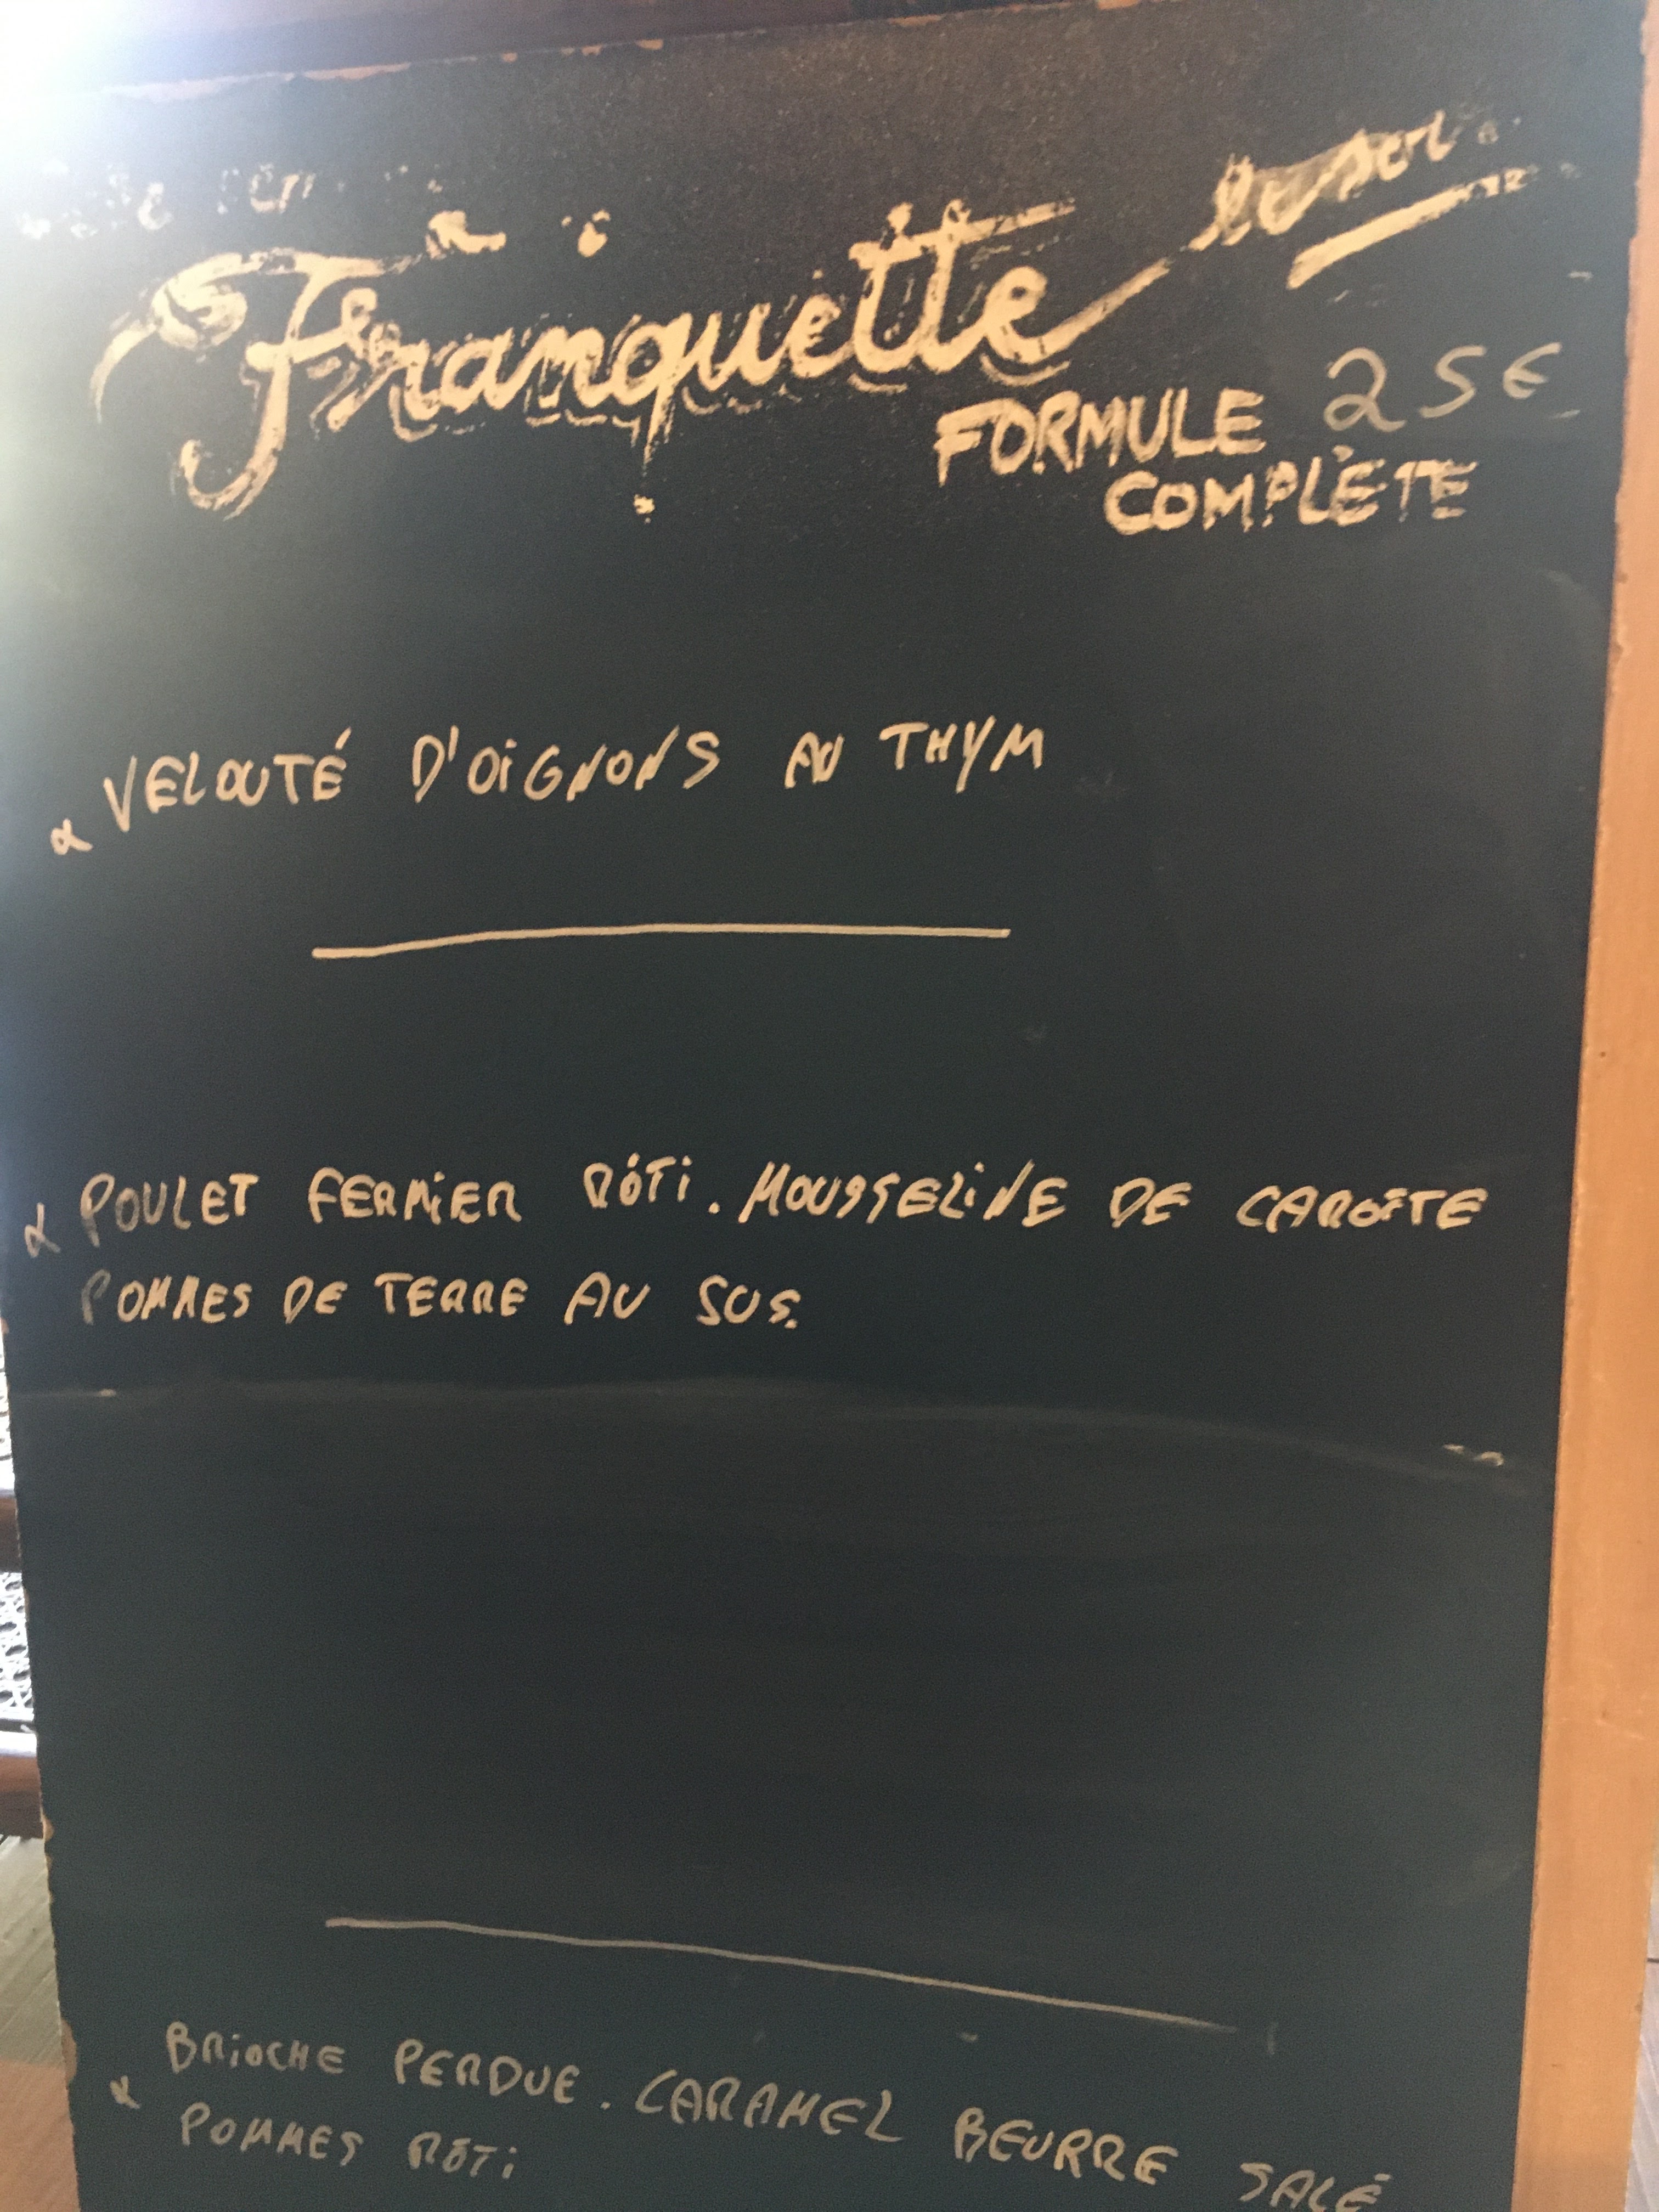 Franquette
FORMULE 25€
COMPLÈTE
VELOUTÉ D'OIGNONS AU THYM
POULET FERMIER RÔTI. MOUSSELINE DE CAROTTE
POMMES DE TERRE AU SUS.
BRIOCHE PERDUE. CARAMEL BEURRE SALÉ
POMMES RÔTI